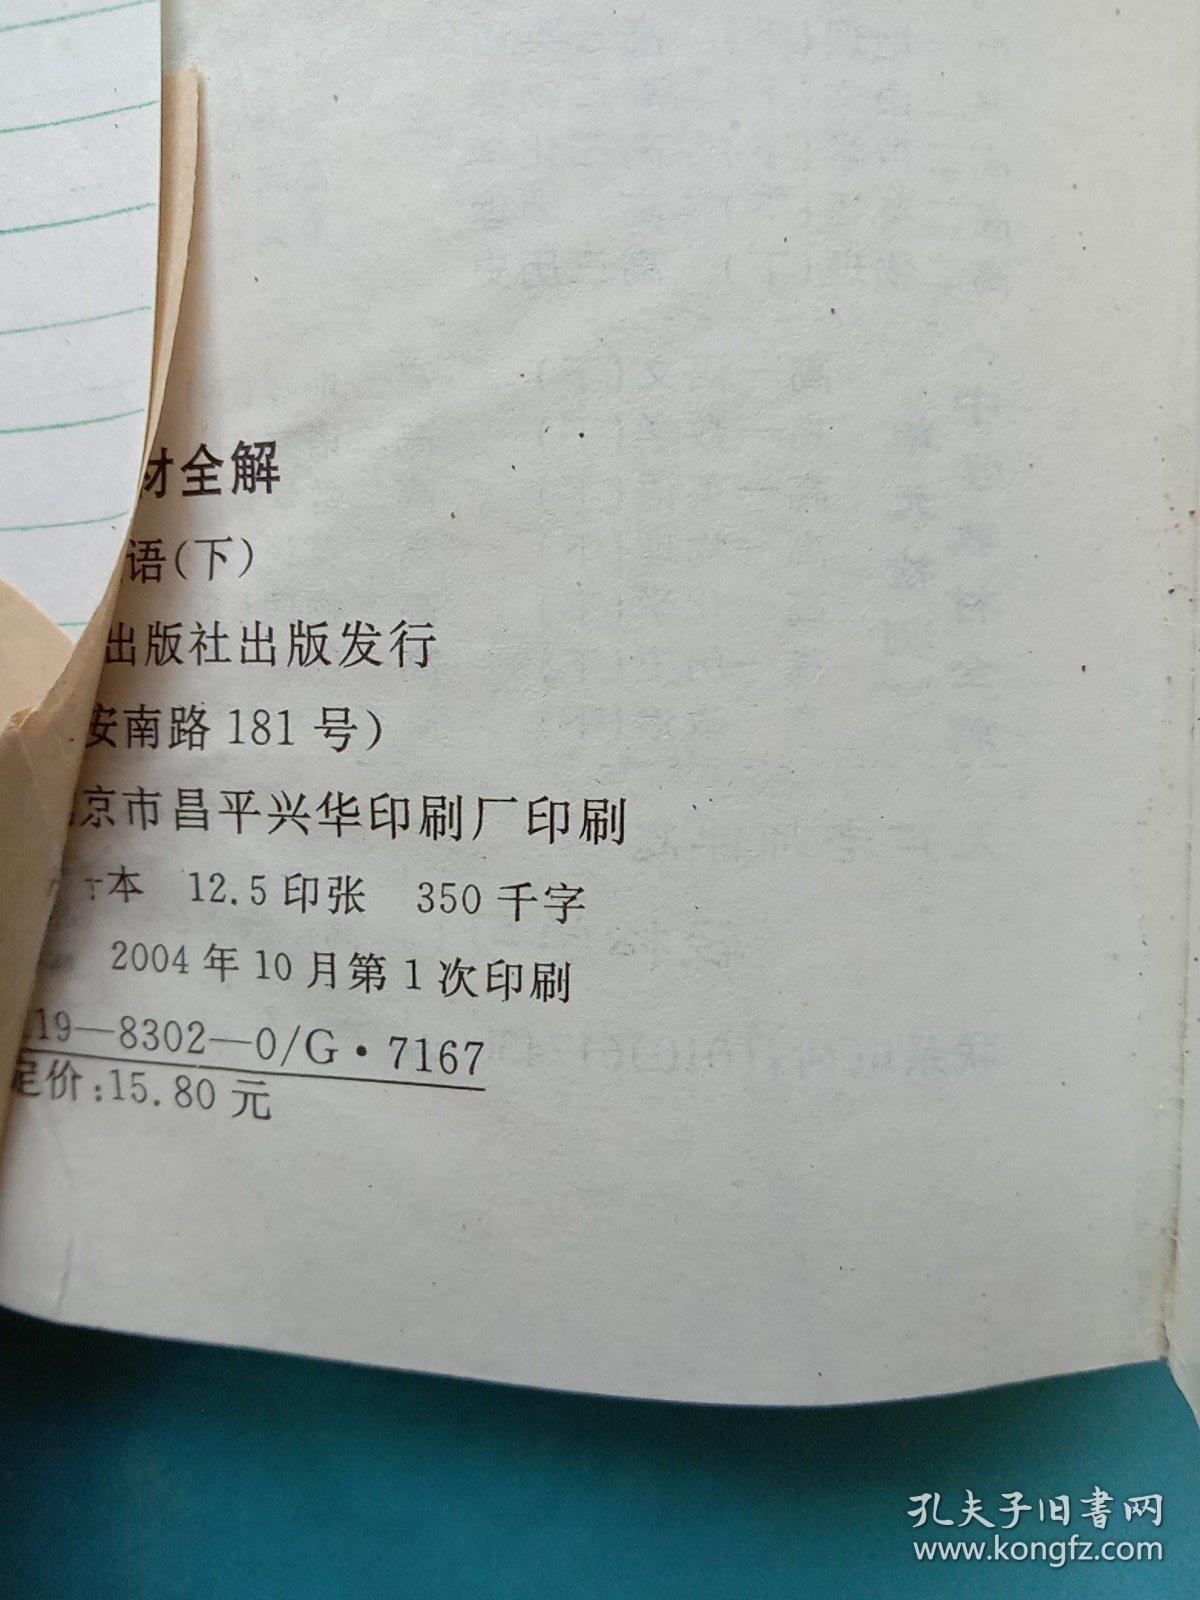 材全解
语(下)
出版社出版发行
安南路 181 号)
京市昌平兴华印刷厂印刷
本 12.5 印张 350 千字
2004 年 10 月第 1 次印刷
19—8302—0/G·7167
定价:15.80 元
孔夫子旧书网
www.kongfz.com